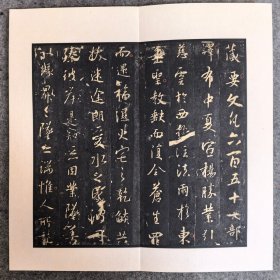 藏要文凡六百五十七部
譯布中夏宣揚勝業引
慈雲於西極注法雨於東
垂聖教缺而復全蒼生罪
而還福濕火宅之乾焰共
拔迷途朗愛水之昏波同
臻彼岸是知惡因業墜善
以緣昇昇墜之端惟人所託